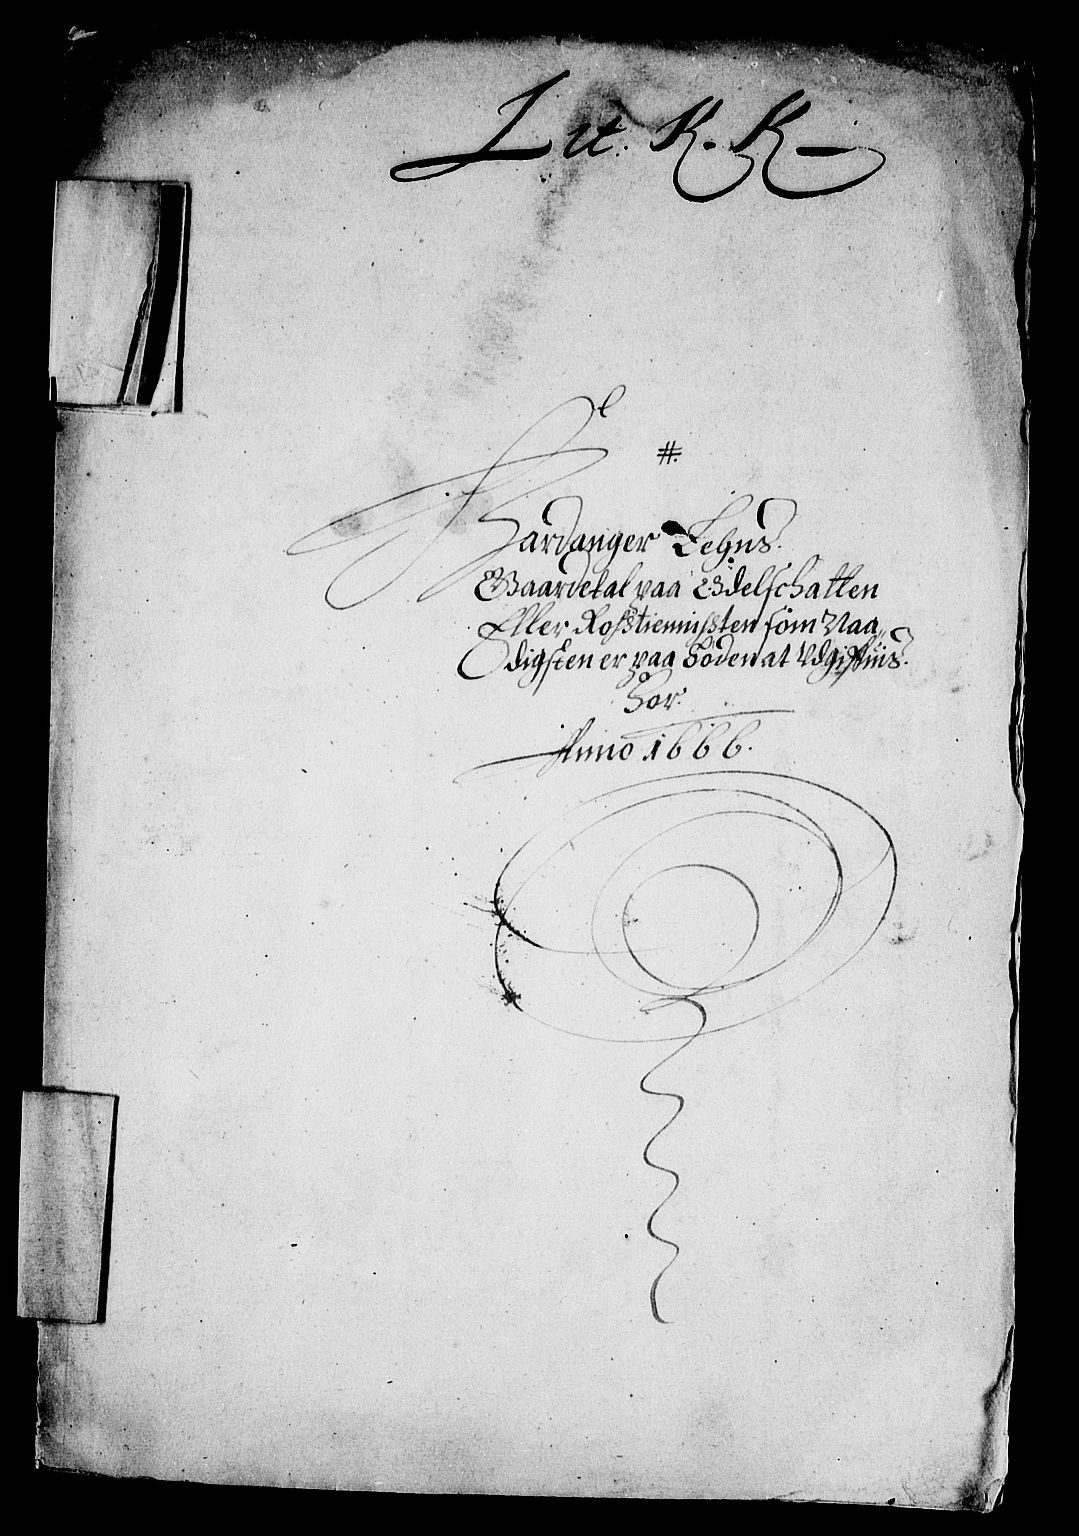 Lit. K. K
#.
Hardanger Lehns.
Gaardetal paa Odelschatten
Eller Rostienništen som Naa„
digsten er paa boden at Udgiffuis.
for.
Anno 1666.